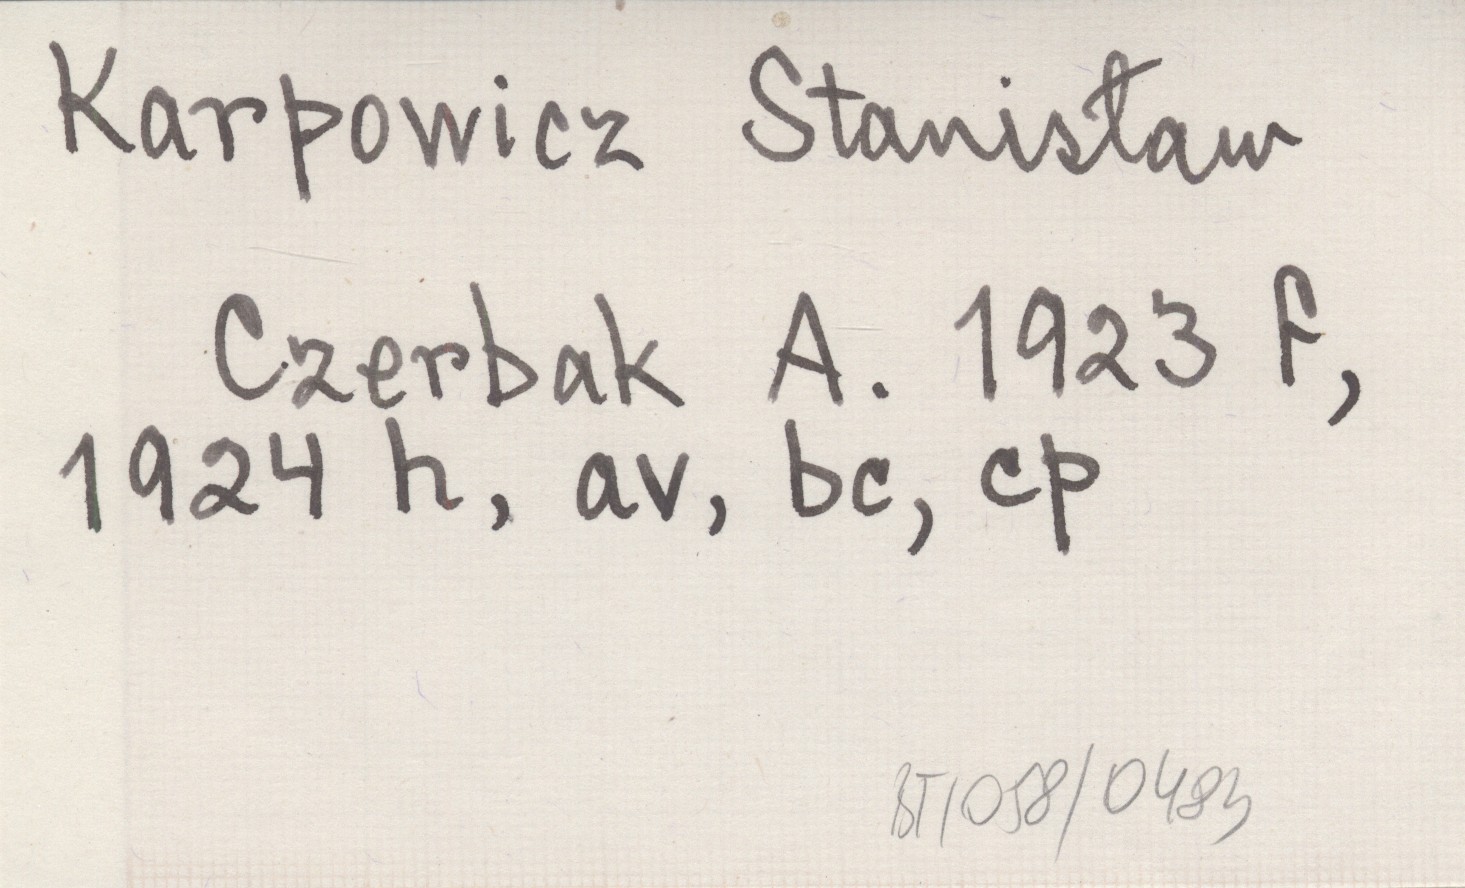 Karpowicz Stanisław
Czerbak A. 1923 f,
1924 h, av, bc, cp
BT/058/0483